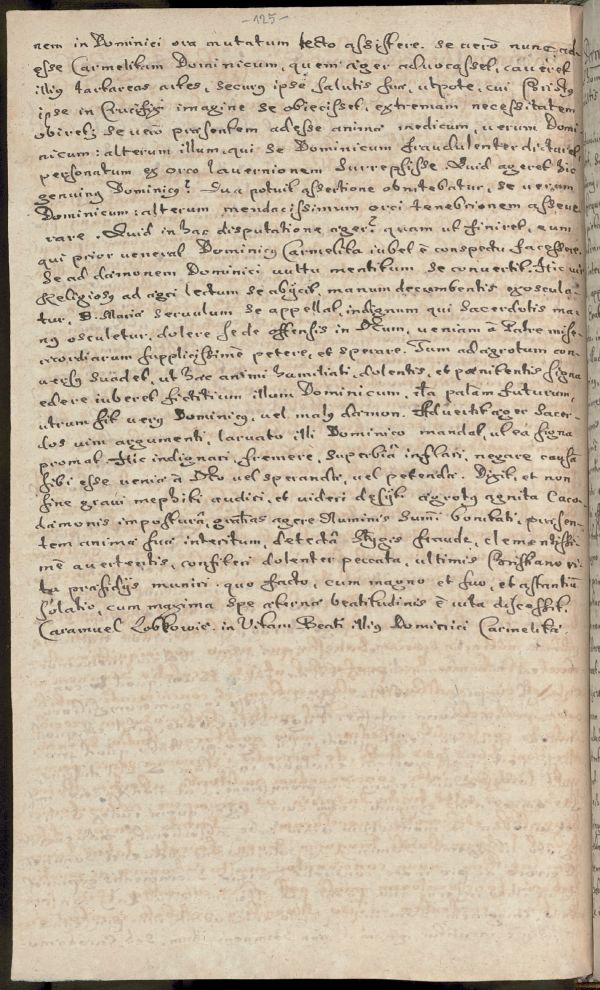 -125-
nem in Dominici ora mutatum lecto assistere. se vero nunc ad-
esse Carmelitam Dominicum, quem æger advocasset, caveret
illius tartareas artes, securus ipse salutis suæ, utpote, cui Christus
ipse in Crucifixi imagine se obiecisset, extremam necessitatem
obiret; se vero præsentem adesse animæ medicum, verum Domi
nicum: alterum illum, qui se Dominicum fraudulenter dictaret
personatum ex orco lavernionem surrepsisse. Quid ageret hic
genuinus Dominicus? Sua potuit assertione obnitebatur, se verum
Dominicum: alterum mendacissimum orci tenebrionem asseve
rare. Quid in hac disputatione æger? quam ut finiret, eum
qui prior venerat Dominicus Carmelita iubet è conspectu facessere.
se ad dæmonem Dominici vultu mentitum se convertit. Hic vir
Religiosus ad ægri lectum se abijcit, manum decumbentis exoscula
tur, D. Mariæ servulum se appellat, indignum qui Sacerdotis ma
nus osculetur, dolere se de offensis in Deum, veniam à Patre mise
ricordiarum supplicissimè petere, et sperare. Tum ad ægrotum con
versus suadet, ut hæc animi humiliati, dolentis, et pœnitentis signa
edere iuberet fictitium illum Dominicum, ita palam futurum,
utrum sit verus Dominicus, vel malus dæmon. Advertit æger Sacer-
dos vim argumenti, larvato illi Dominico mandat, ut ea signa
promat. Hic indignari, fremere, superbiâ inflari, negare causam
sibi esse veniæ à Deo vel sperandæ, vel petendæ. Dixit, et non
sine gravi mephiti audiri, et videri desijt. ægrotus agnita Caco-
dæmonis imposturâ, gratias agere Numinis summi bonitati, præsen-
tem animæ suæ interitum, detectâ Stygis fraude, clementissi-
mè avertentis, confiteri dolenter peccata, ultimis Christiano ri-
tu præsidijs muniri. quo facto, cum magno et suo, et astantium
solatio, cum maxima spe æternæ beatitudinis è vita discessit.
Caramuel Lobkowis. in Vitam Beati illius Dominici Carmelitæ.